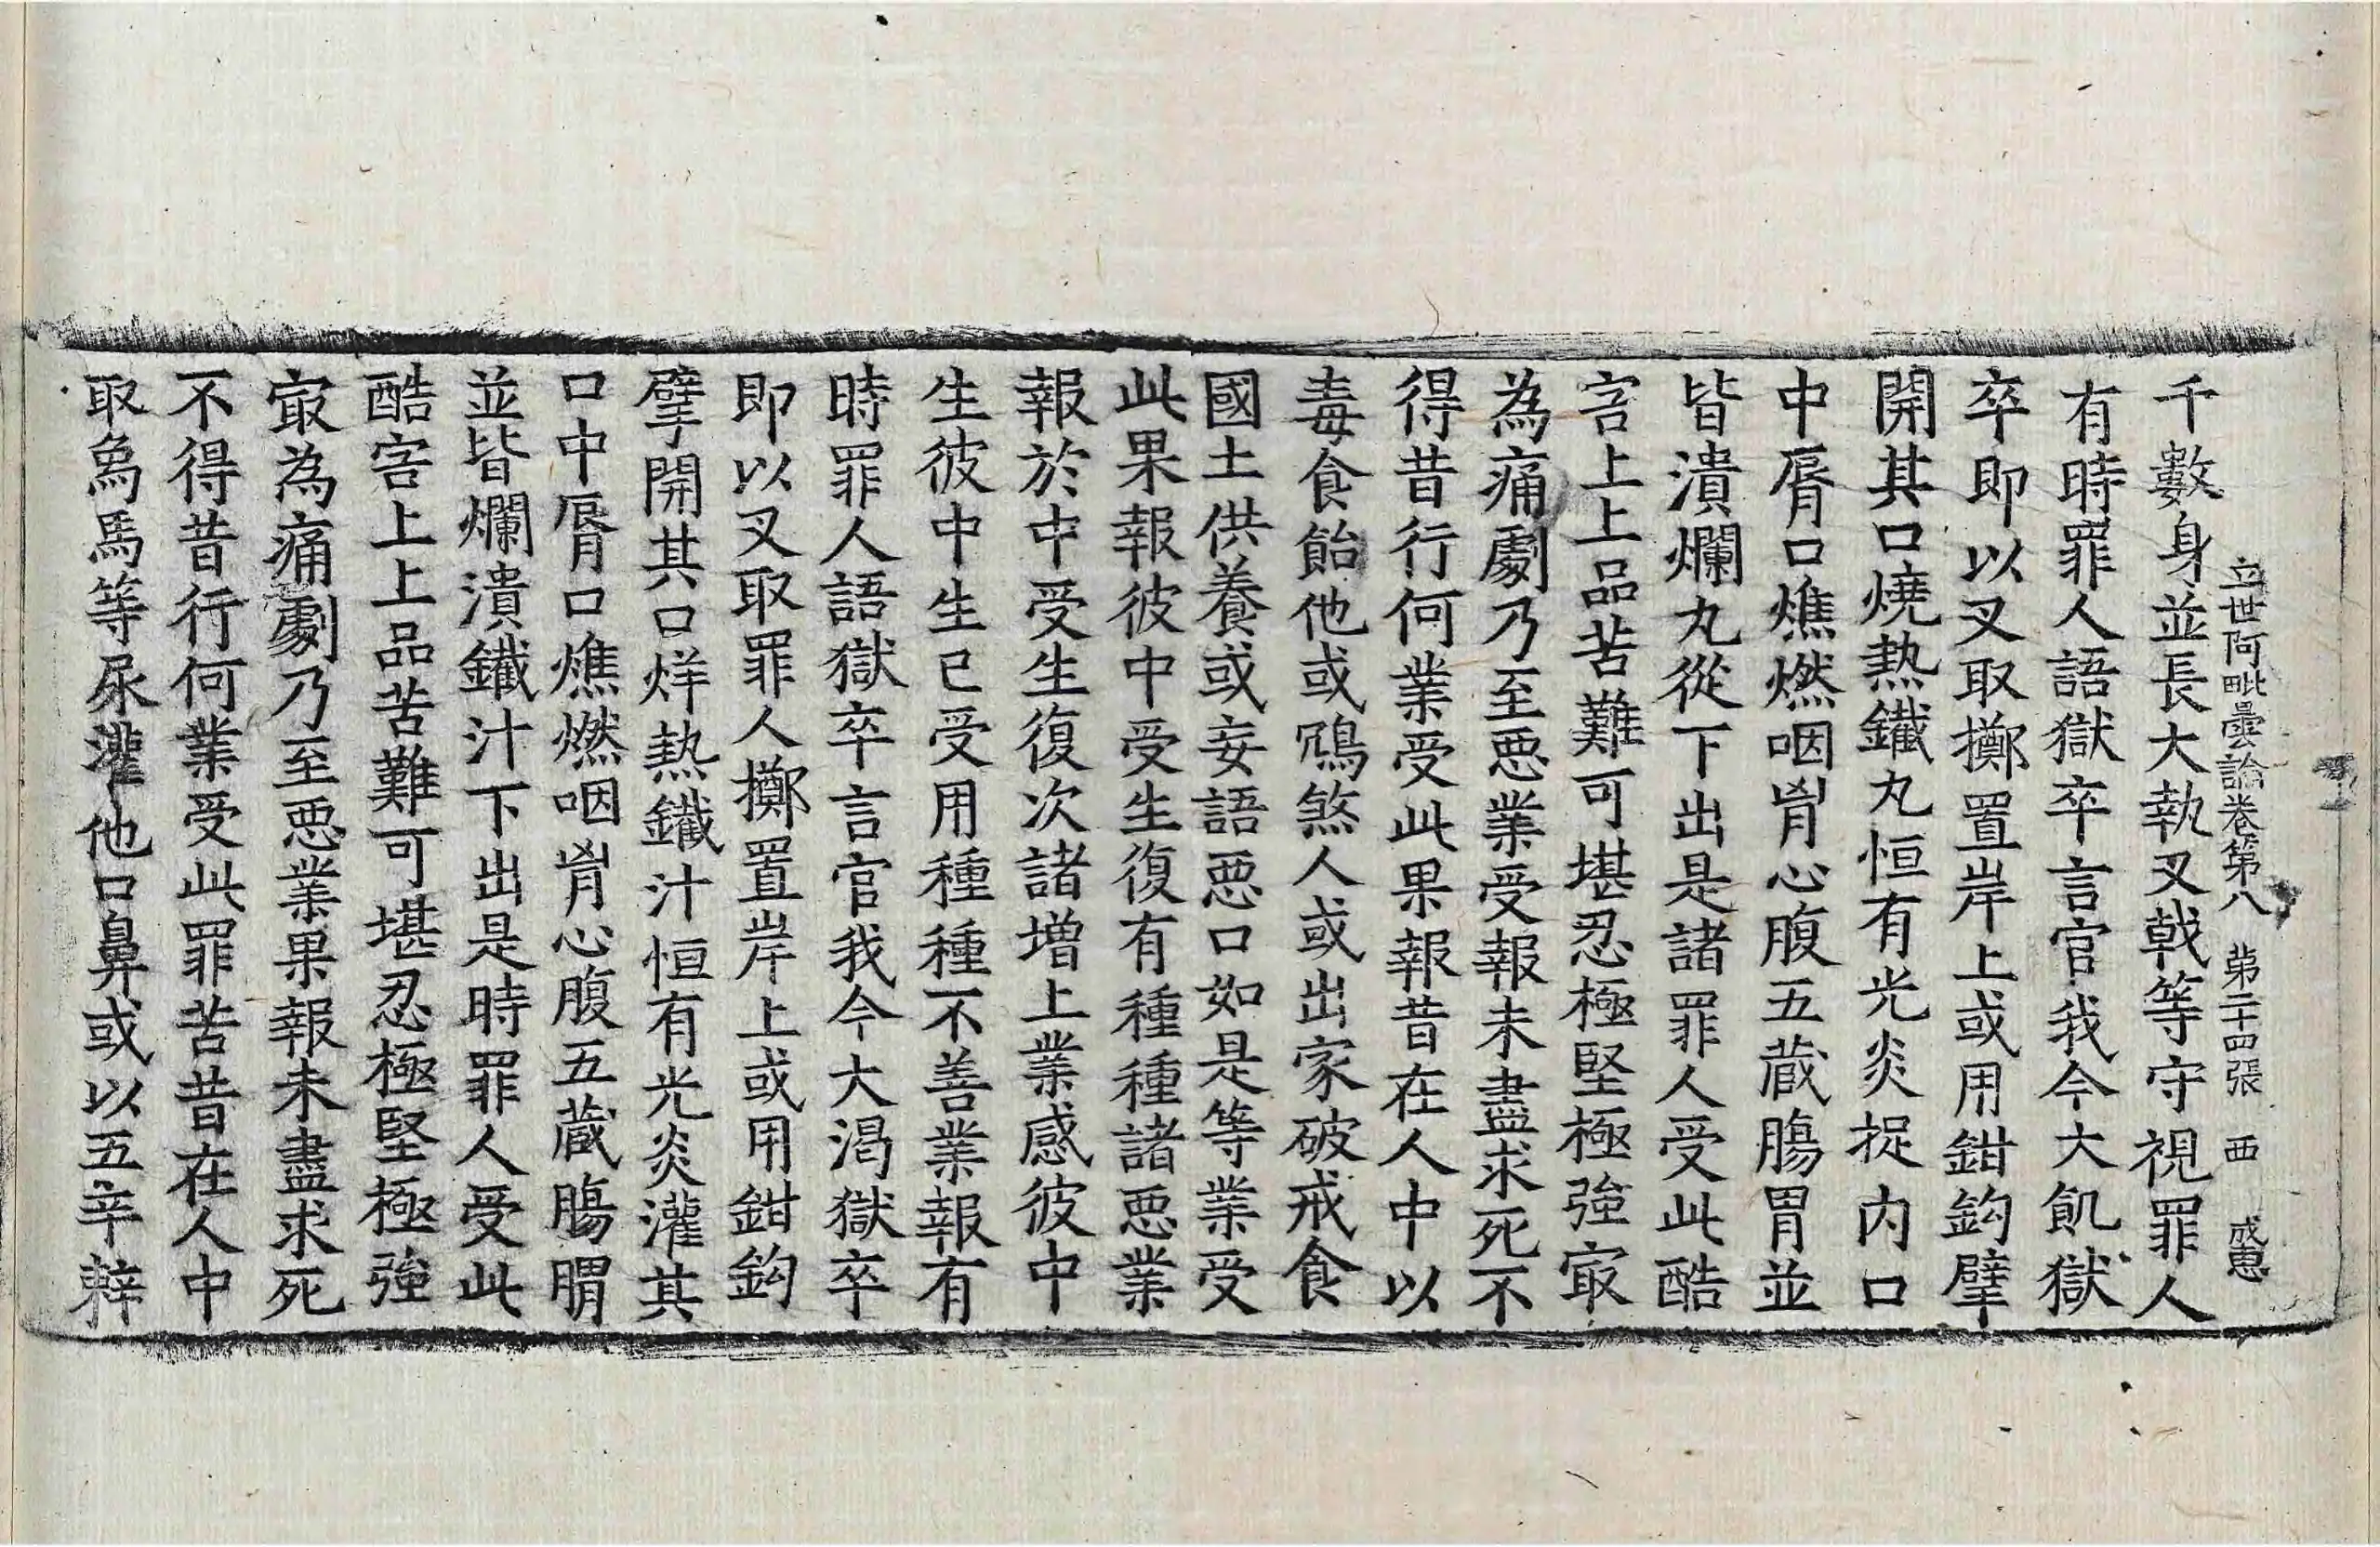 立世阿毗曇論卷第八 第二十四張 西 成惠
千數身並長大執叉戟等守視罪人
有時罪人語獄卒言官我今大飢獄
卒即以叉取擲置岸上或用鉗鉤擘
開其口燒熱鐵丸恒有光炎捉內口
中脣口燋燃咽胷心腹五藏腸胃並
皆潰爛丸從下出是諸罪人受此酷
害上上品苦難可堪忍極堅極強㝡
為痛劇乃至惡業受報未盡求死不
得昔行何業受此果報昔在人中以
毒食飴他或鴆煞人或出家破戒食
國土供養或妄語惡口如是等業受
此果報彼中受生復有種種諸惡業
報於中受生復次諸增上業感彼中
生彼中生已受用種種不善業報有
時罪人語獄卒言官我今大渴獄卒
即以叉取罪人擲置岸上或用鉗鉤
擘開其口烊熱鐵汁恒有光炎灌其
口中脣口燋燃咽胷心腹五藏腸𦞅
並皆爛潰鐵汁下出是時罪人受此
酷害上上品苦難可堪忍極堅極強
㝡為痛劇乃至惡業果報未盡求死
不得昔行何業受此罪苦昔在人中
取象馬等尿灌他口鼻或以五辛辢